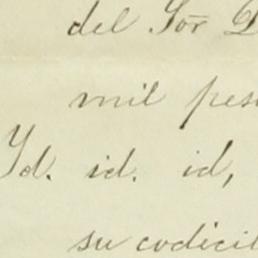 del Sor
mil pes
Yd. id. id,
su codicil